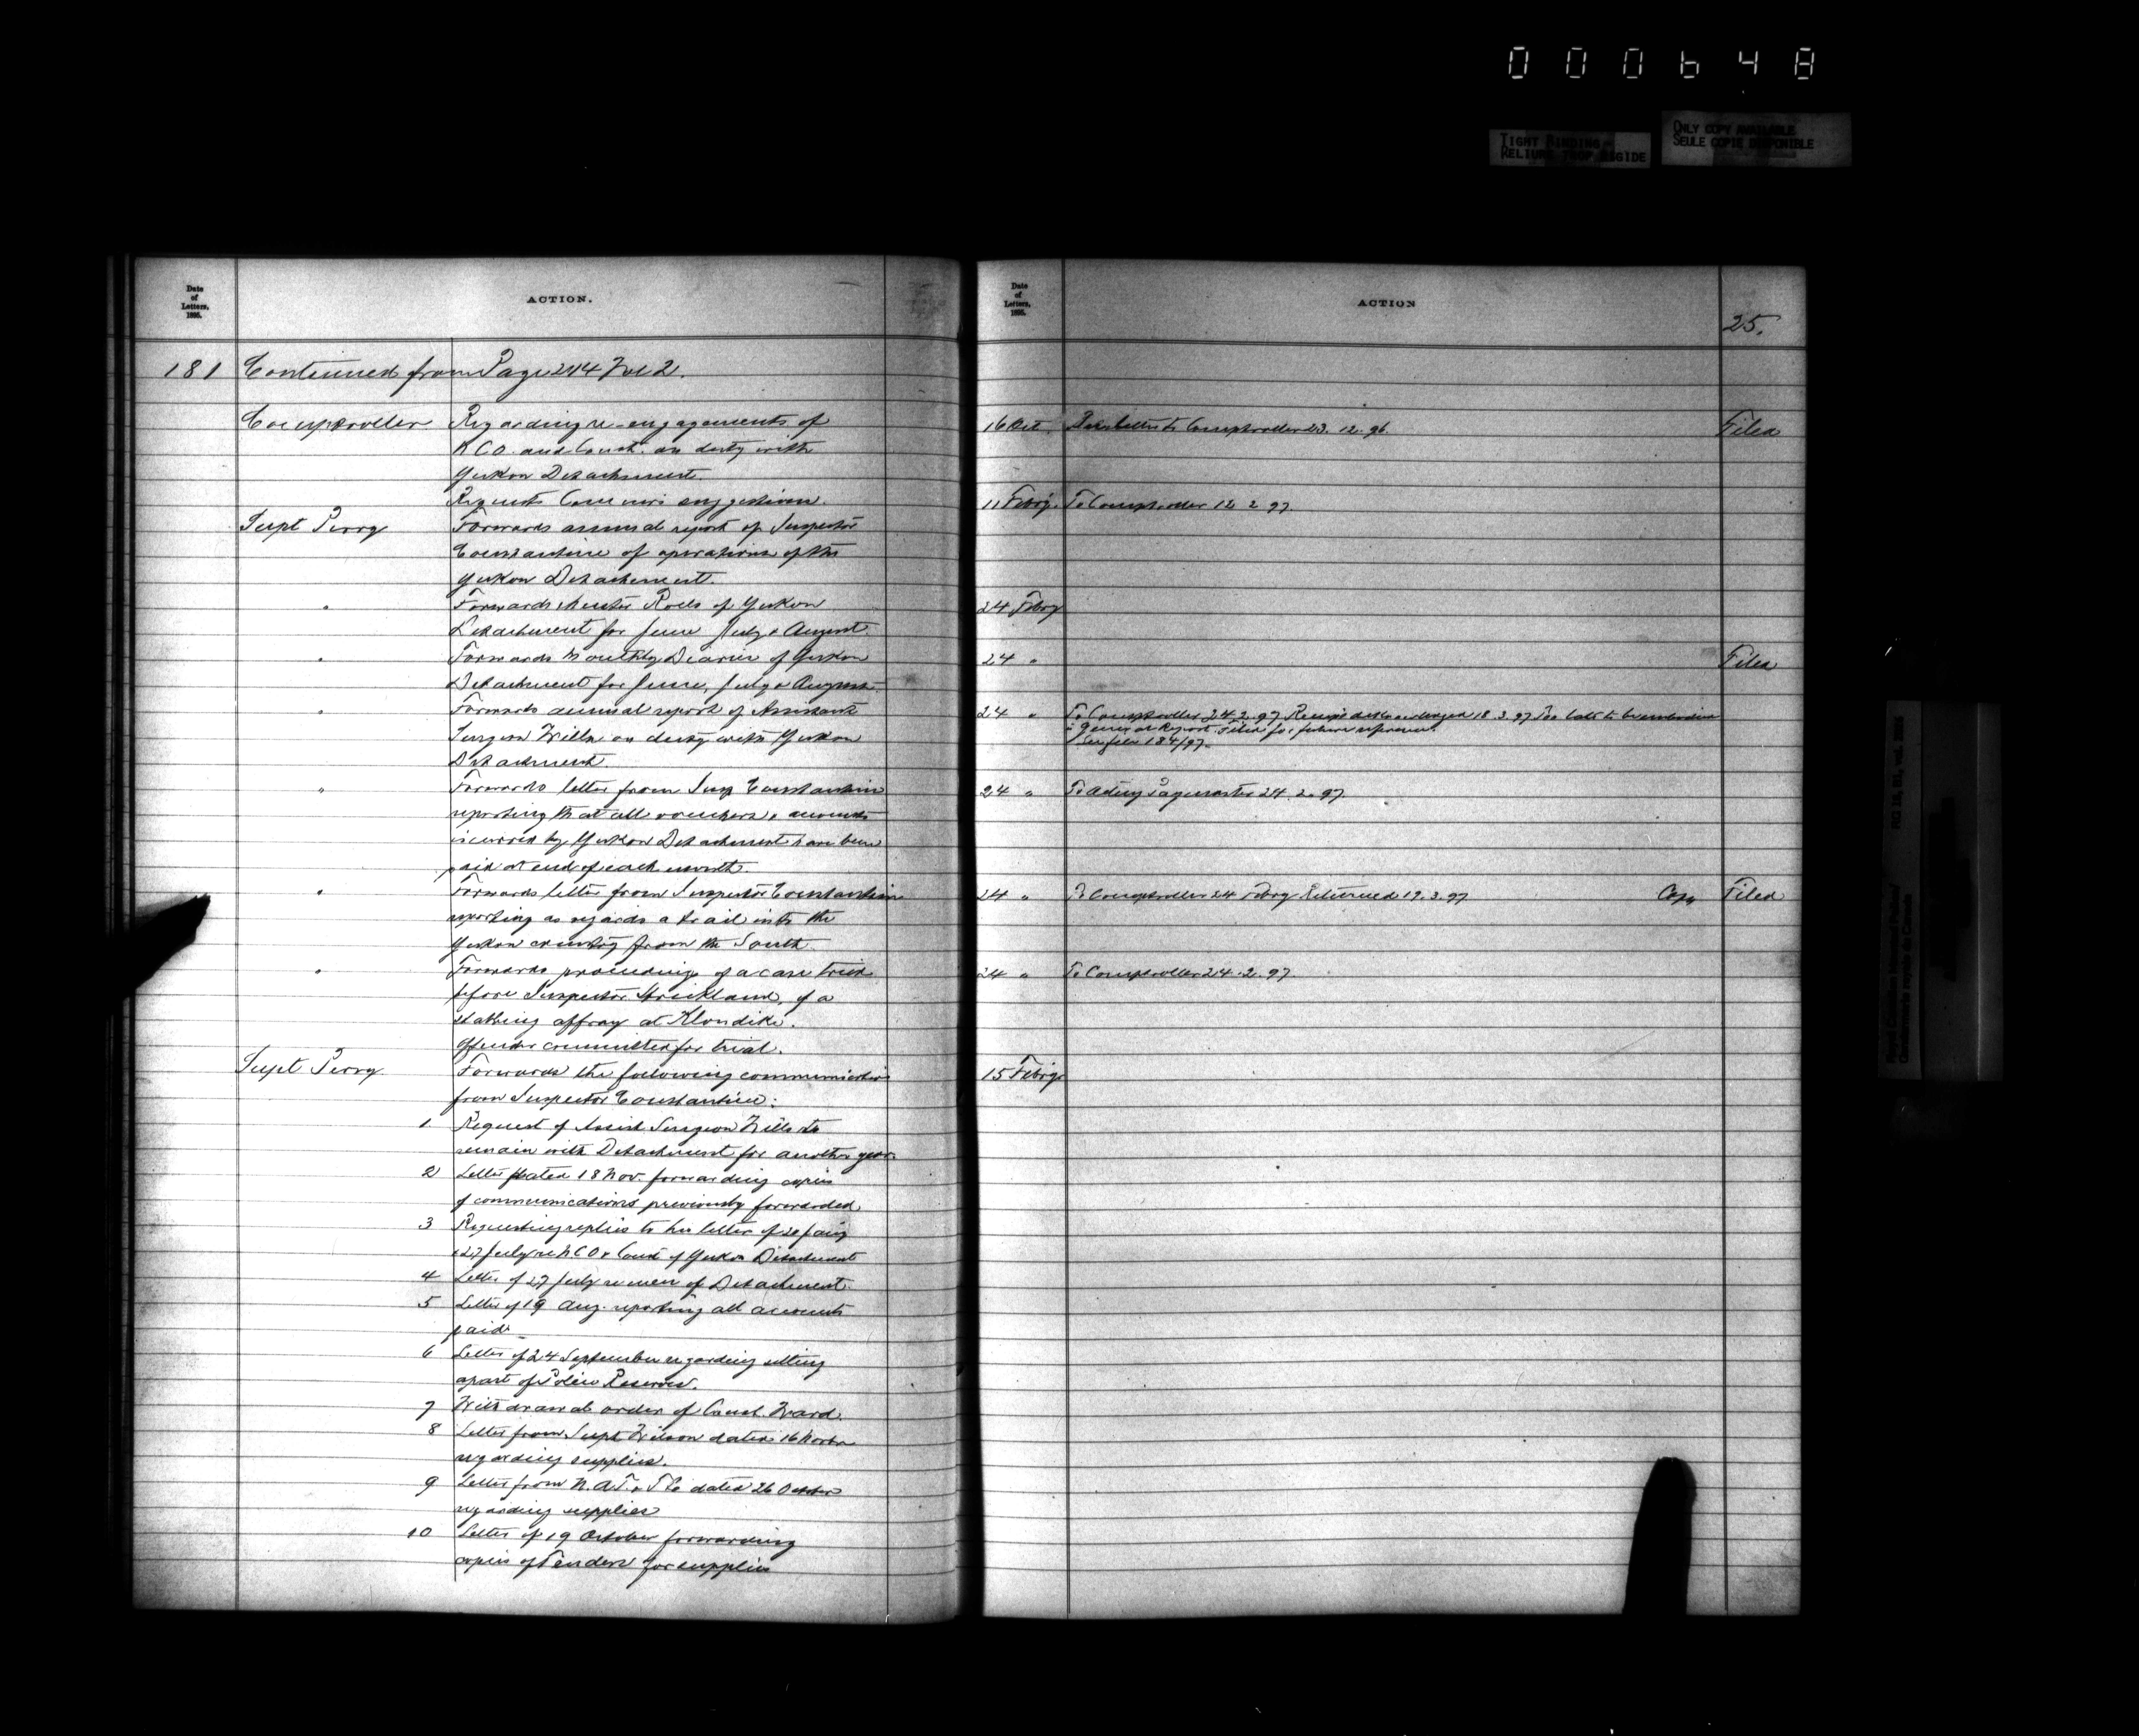 000648
TIGHT BINDING
RELIURE TROP RIGIDE
ONLY COPY AVAILABLE
SEULE COPIE DISPONIBLE
Date
of
Letters,
1895.
ACTION.
181 Continued from Page 244 Vol 2.
Comptroller Regarding re-engagements of
N.C.O. and Const. on duty with
Yukon Detachment.
Requests Commrs suggestions.
Supt Perry Forwards annual report of Inspector
Constantine of operations of the
Yukon Detachment.
" Forwards Muster Rolls of Yukon
Detachment for June July & August
" Forwards Monthly Diaries of Yukon
Detachment for June, July & August
" Forwards annual report of Assistant
Surgeon Wills on duty with Yukon
Detachment.
" Forwards letter from Insp Constantine
reporting that all vouchers & accounts
incurred by Yukon Detachment have been
paid at end of each month.
" Forwards letter from Inspector Constantine
reporting as regards a trail into the
Yukon country from the South
" Forwards proceedings of a case tried
before Inspector Strickland, of a
stabbing affray at Klondike.
Offender committed for trial.
Supt Perry Forwards the following communications
from Inspector Constantine:
1 Request of Assist Surgeon Wills to
remain with Detachment for another year.
2 Letter dated 18 Nov. forwarding copies
of communications previously forwarded
3 Requesting replies to his letter of 20 Jany
& 27 July re N.C.O & Const of Yukon Detachment
4 Letter of 27 July re men of Detachment
5 Letter of 19 Aug. reporting all accounts
paid
6 Letter of 24 September regarding setting
apart of Police Reserves.
7 Withdrawal order of Const. Ward.
8 Letter from Supt Wilson dated 16 Novbr
regarding supplies.
9 Letter from N.A.T. & T Co dated 26 October
regarding supplies
10 Letter of 19 October forwarding
copies of Tenders for supplies
Date
of
Letters,
1895.
ACTION
25.
16 Oct. letter to Comptroller 23.12.96. Filed
11 Febry. To Comptroller 12 2 97.
24 Febry
24 " Filed
24 " To Comptroller 24.2.97 Receipt acknowledged 18.3.97 Too late to be embodied
in General Report. Filed for future reference.
See file 184/97.
24 " To Acting Paymaster 24.2.97.
24 " To Comptroller 24 Febry Returned 19.3.97 Copy Filed
24 " To Comptroller 24.2.97.
15 Febry